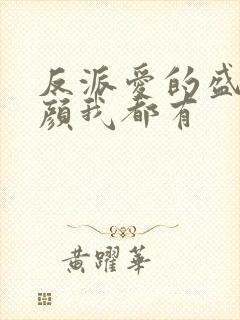 反派愛的盛
顔我都有
黄躍華